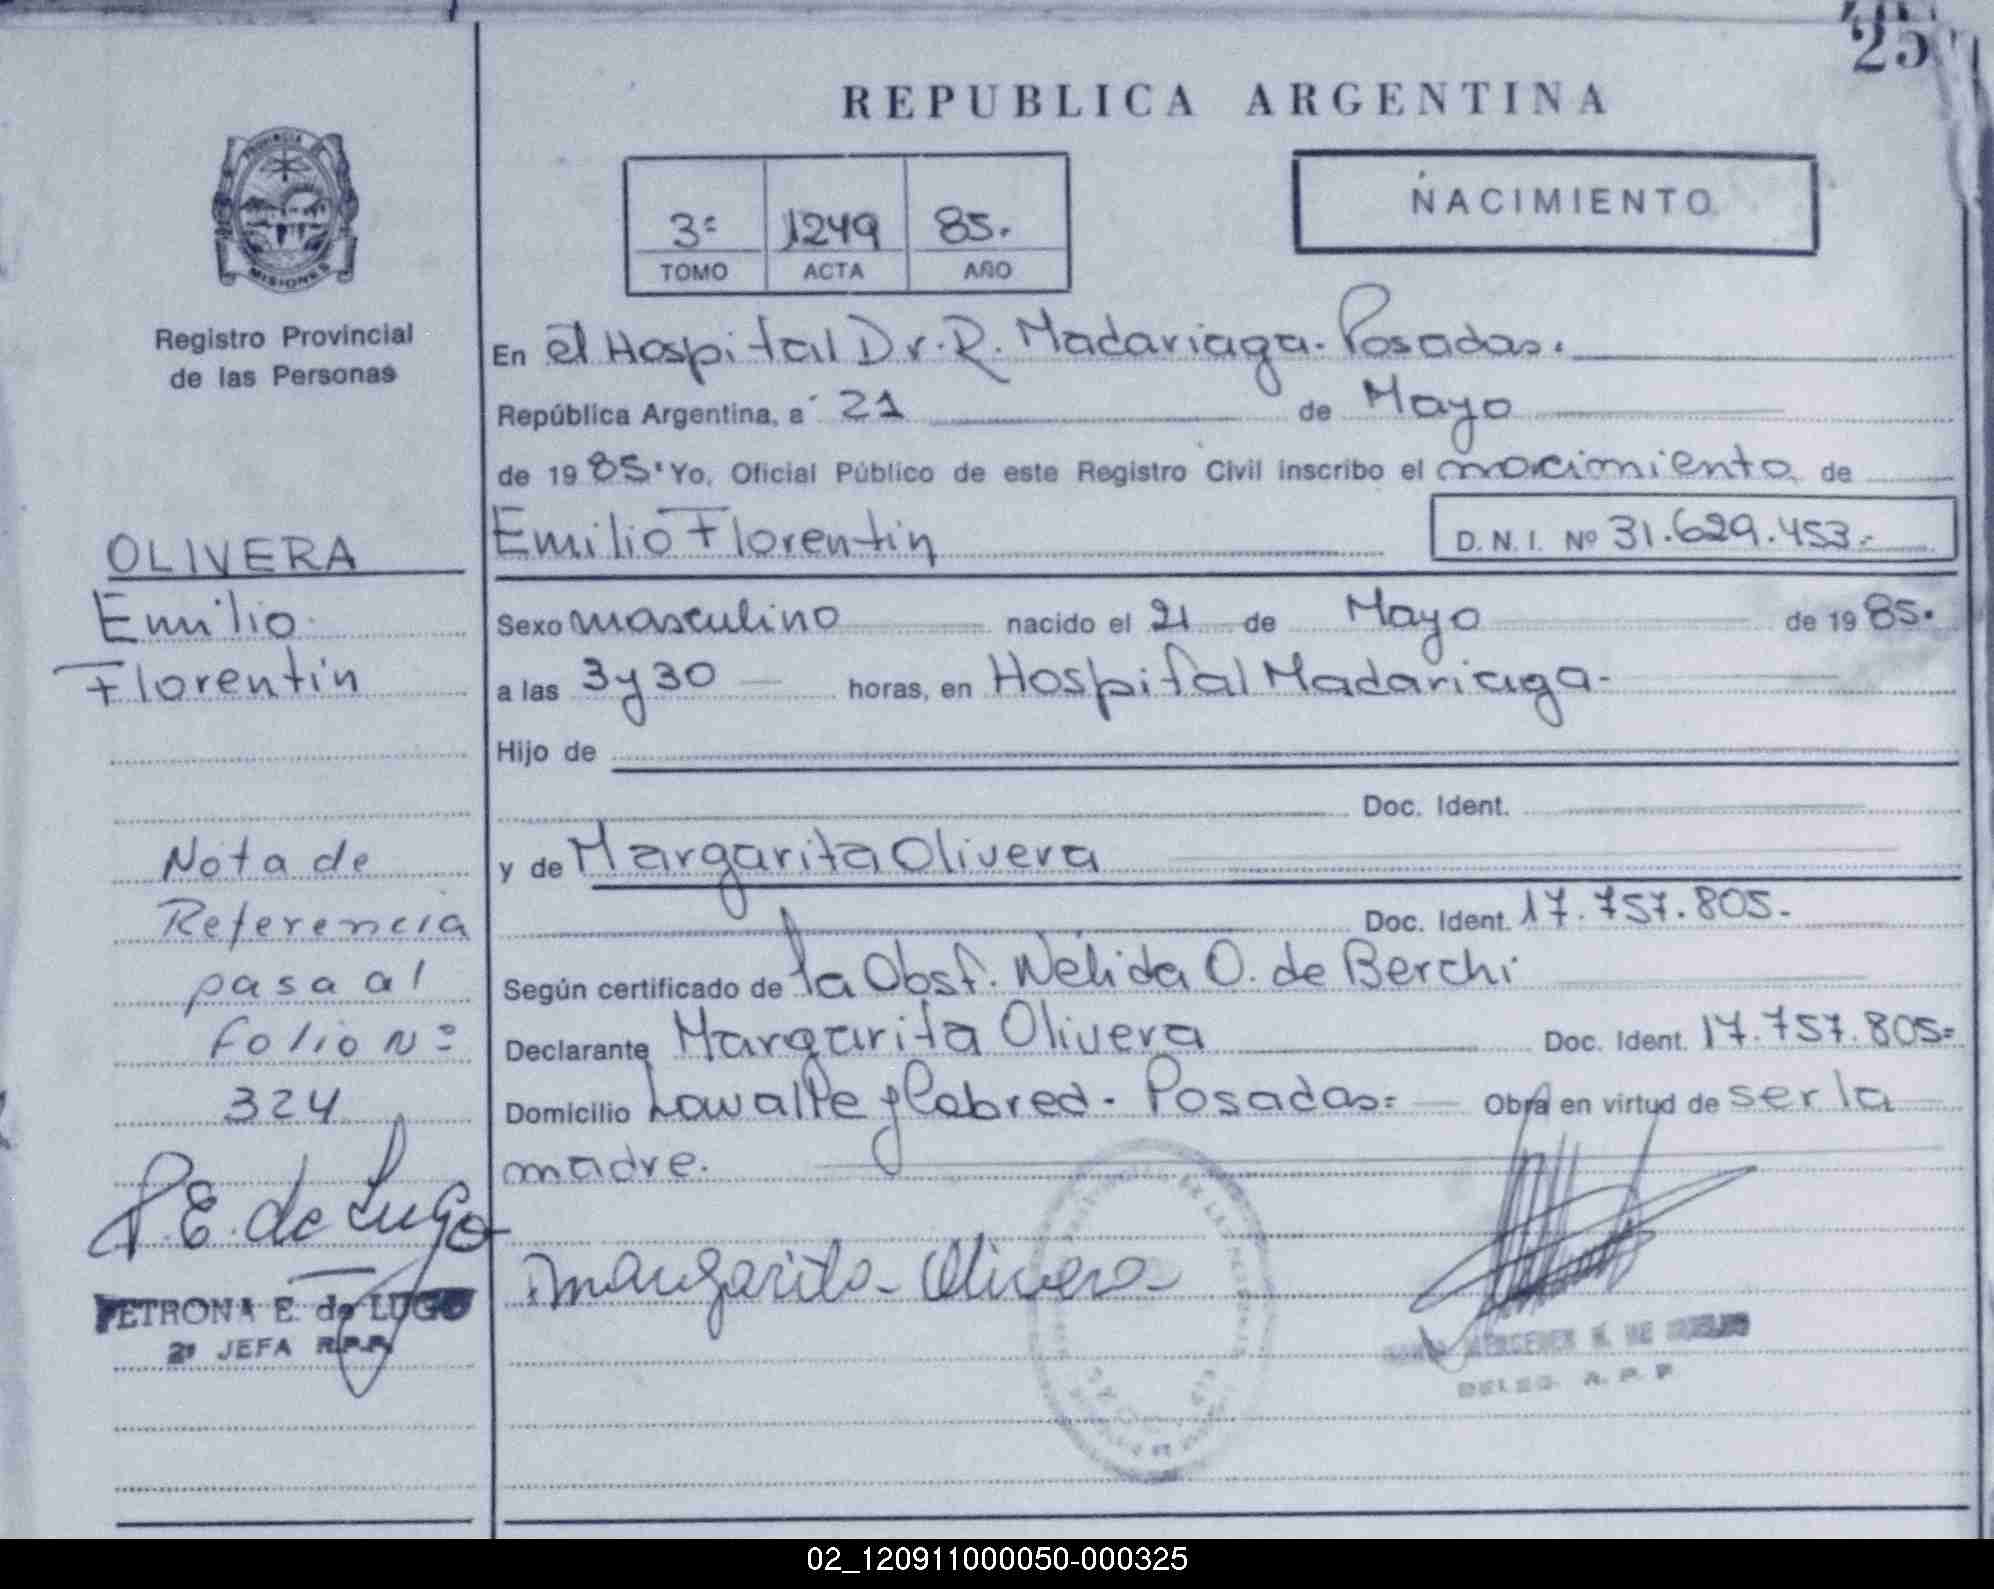 25
REPUBLICA ARGENTINA
PROVINCIA
MISIONES
Registro Provincial
de las Personas
3º 1249 85.
TOMO ACTA AÑO
NACIMIENTO
En el Hospital Dr. R. Madariaga. Posadas.
República Argentina, a 21 de Mayo
de 1985. Yo, Oficial Público de este Registro Civil inscribo el nacimiento de
Emilio Florentin D. N. I. Nº 31.629.453.-
Sexo masculino nacido el 21 de Mayo de 1985.
a las 3 y 30 horas, en Hospital Madariaga-
Hijo de
Doc. Ident.
y de Margarita Olivera
Doc. Ident. 17.757.805.-
Según certificado de la Obst. Nélida O. de Berchi
Declarante Margarita Olivera Doc. Ident. 17.757.805=
Domicilio y Cabred - Posadas= Obra en virtud de ser la
madre.
Margarita Olivera
DELEG. R. P. P.
OLIVERA
Emilio
Florentin
Nota de
Referencia
pasa al
folio Nº
324
P. E. de Lugo
PETRONA E. de LUGO
2º JEFA R.P.P.
02_120911000050-000325